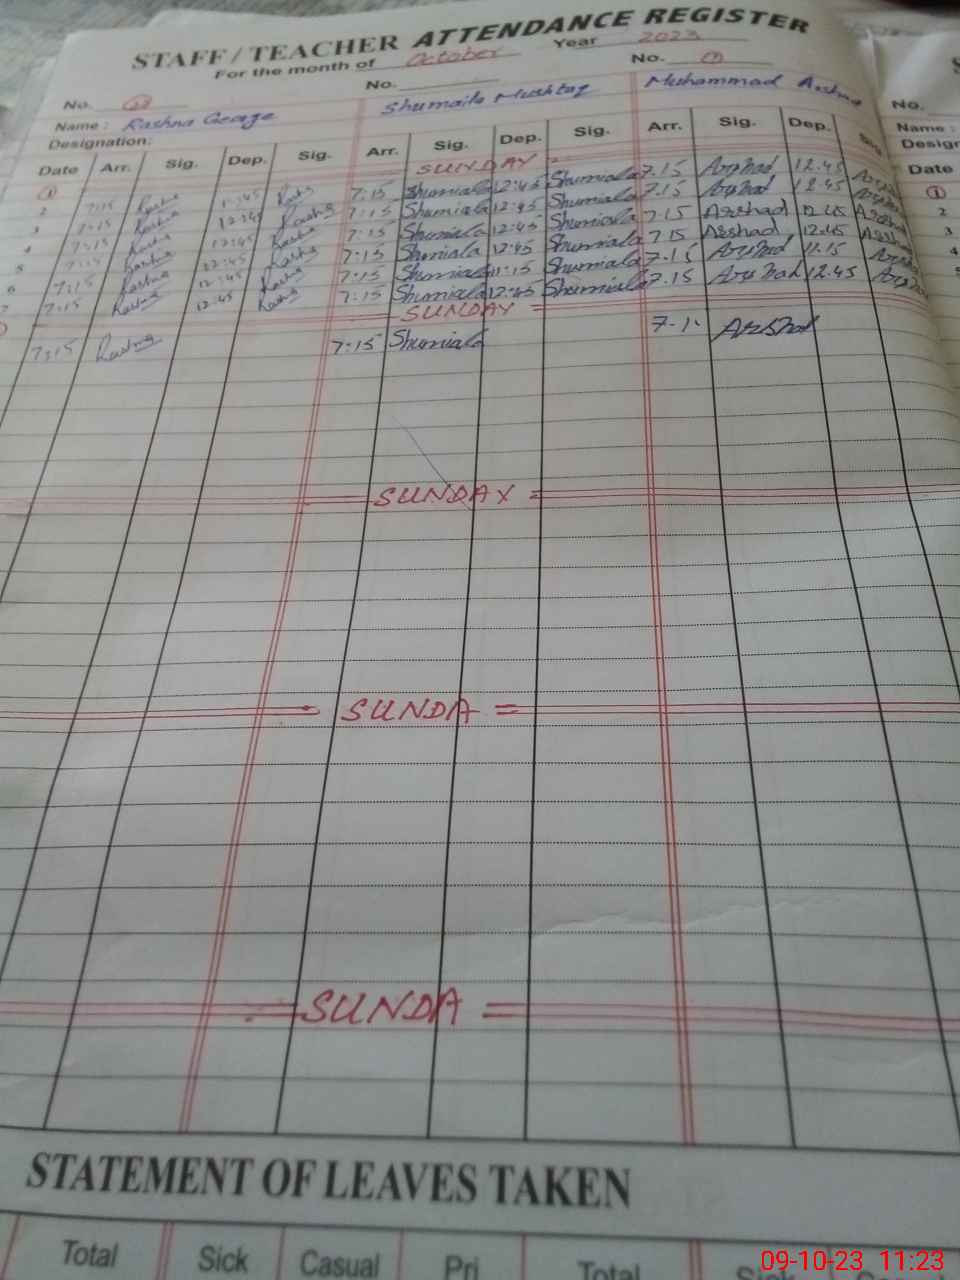 STAFF / TEACHER ATTENDANCE REGISTER
For the month of October Year 2023
No. No. No. No.
Name : Rashna George Shumaila Mushtaq Muhammad Arshad Name :
Designation: Desigr
Date Arr. Sig. Dep. Sig. Arr. Sig. Dep. Sig. Arr. Sig. Dep. Sig Date
1 SUNDAY 1
2 7:15 Rashna 1:45 7:15 Shumiala 12:45 Shumiala 7.15 Arshad 12.45 2
3 7:15 Rashna 12:45 Rashna 7:15 Shumiala 12:45 Shumiala 7.15 Arshad 12.45 Arshad 3
4 7:15 Rashna 12:45 Rashna 7:15 Shumiala 12:45 Shumiala 7.15 Arshad 12.45 Arshad 4
5 7:15 Rashna 12:45 Rashna 7:15 Shumiala 12:45 Shumiala 7.15 Arshad 12.45 Arshad 5
6 7:15 Rashna 12:45 Rashna 7:15 Shumiala 11:15 Shumiala 7.15 Arshad 11.15
7 7:15 Rashna 12:45 Rashna 7:15 Shumiala 12:45 Shumiala 7.15 Arshad 12.45
SUNDAY
7:15 Rashna 7:15 Shumiala 7.1 Arshad
SUNDAY
SUNDA
SUNDA
STATEMENT OF LEAVES TAKEN
Total Sick Casual Pri Total Sick
09-10-23 11:23